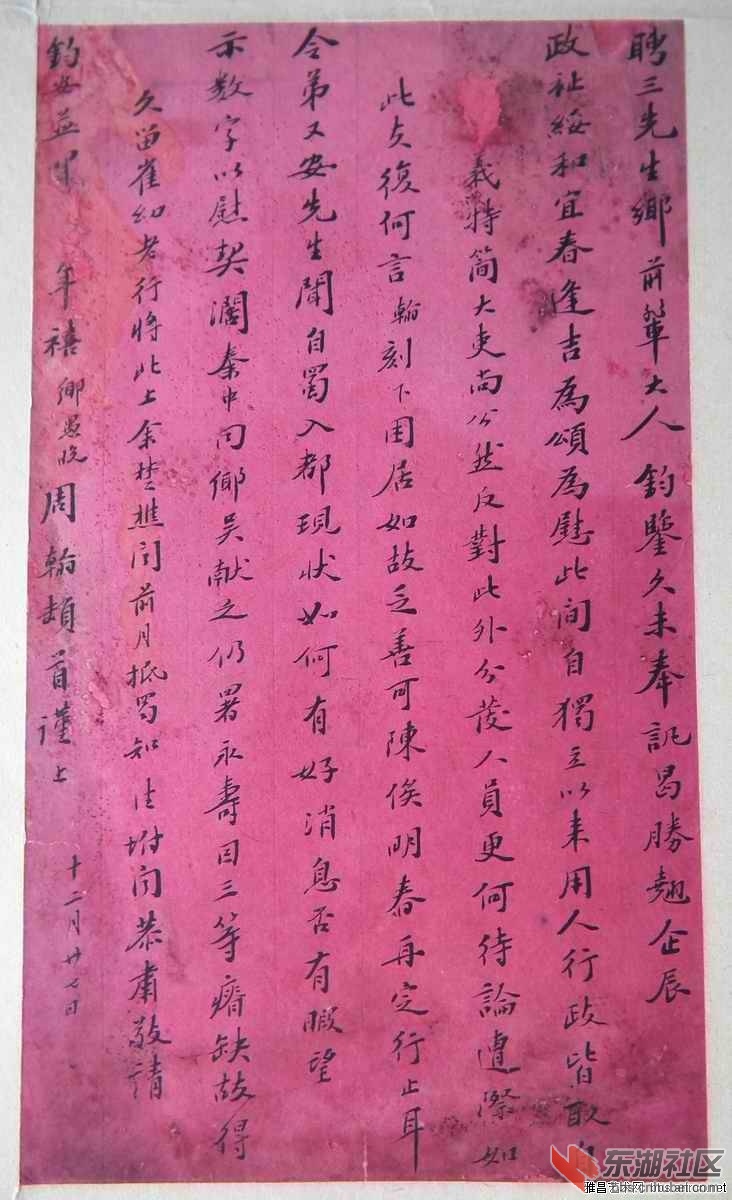 聘三先生鄉前輩大人鈞鑒久未奉訊曷勝翹企辰
政祉綏和宜春逢吉為頌為慰此間自獨立以来用人行政皆取
義特简大吏尚公然反對此外分發人員更何待論遭際如
此夫復何言翰刻下困居如故乏善可陳俟明春再定行止耳
令弟又安先生聞自蜀入都現状如何有好消息否有暇望
示数字以慰契濶秦中同鄉吴献之仍署永壽因三等瘠缺故得
久留崔幼者行將此上余楚樵间前月抵蜀知注坿聞恭肅敬請
鈞安並 年禧 鄉愚晚周翰頓首謹上
十二月廿七日
东湖社区
雅昌艺术网